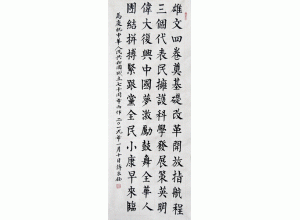 雄文四卷奠基礎改革開放指航程
三個代表民擁護科學發展策英明
偉大復興中國夢激勵鼓舞全華人
團結拼搏緊跟黨全民小康早來臨
爲慶祝中華人民共和國成立七十周年而作二〇一九年一月十日